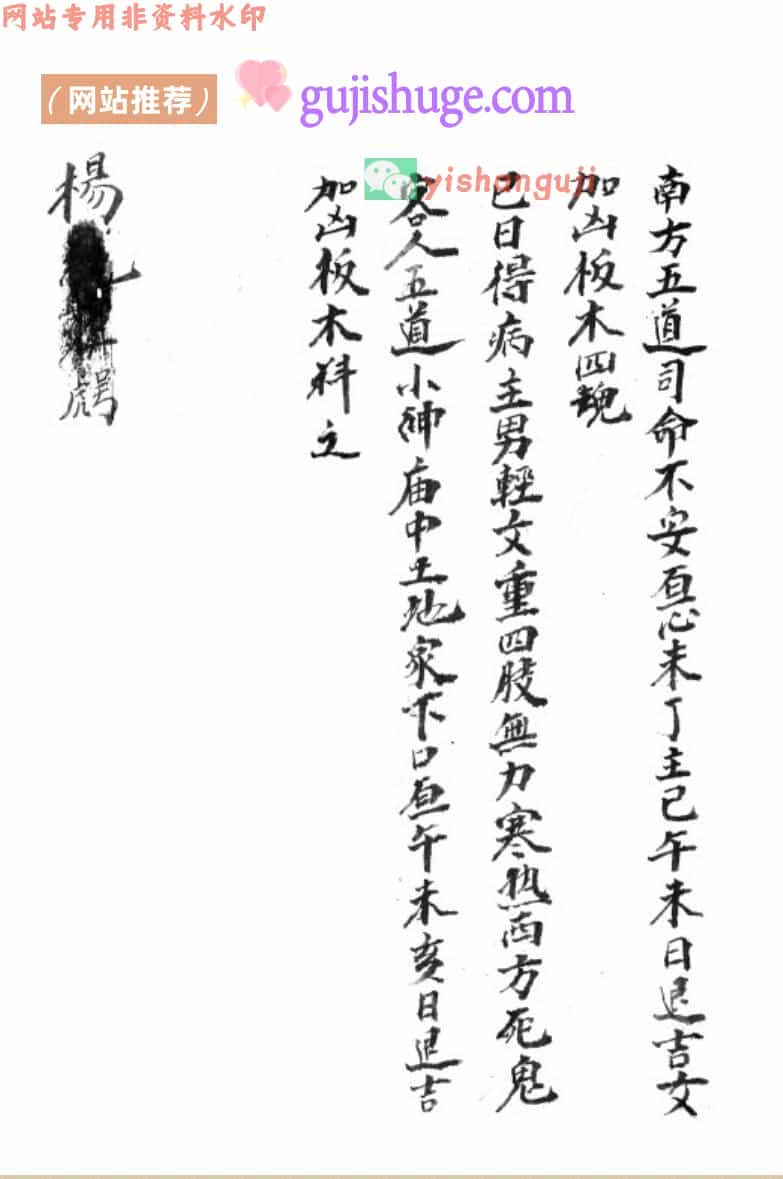 网站专用非资料水印
（网站推荐）
gujishuge.com
yishanguji
南方五道司命不安亙心未丁主巳午未日退吉女
加凶板木四魂
巳日得病主男輕女重四肢無力寒热西方死鬼
客人五道小神庙中土地家下口亙午未亥日退吉
加凶板木科之
楊號